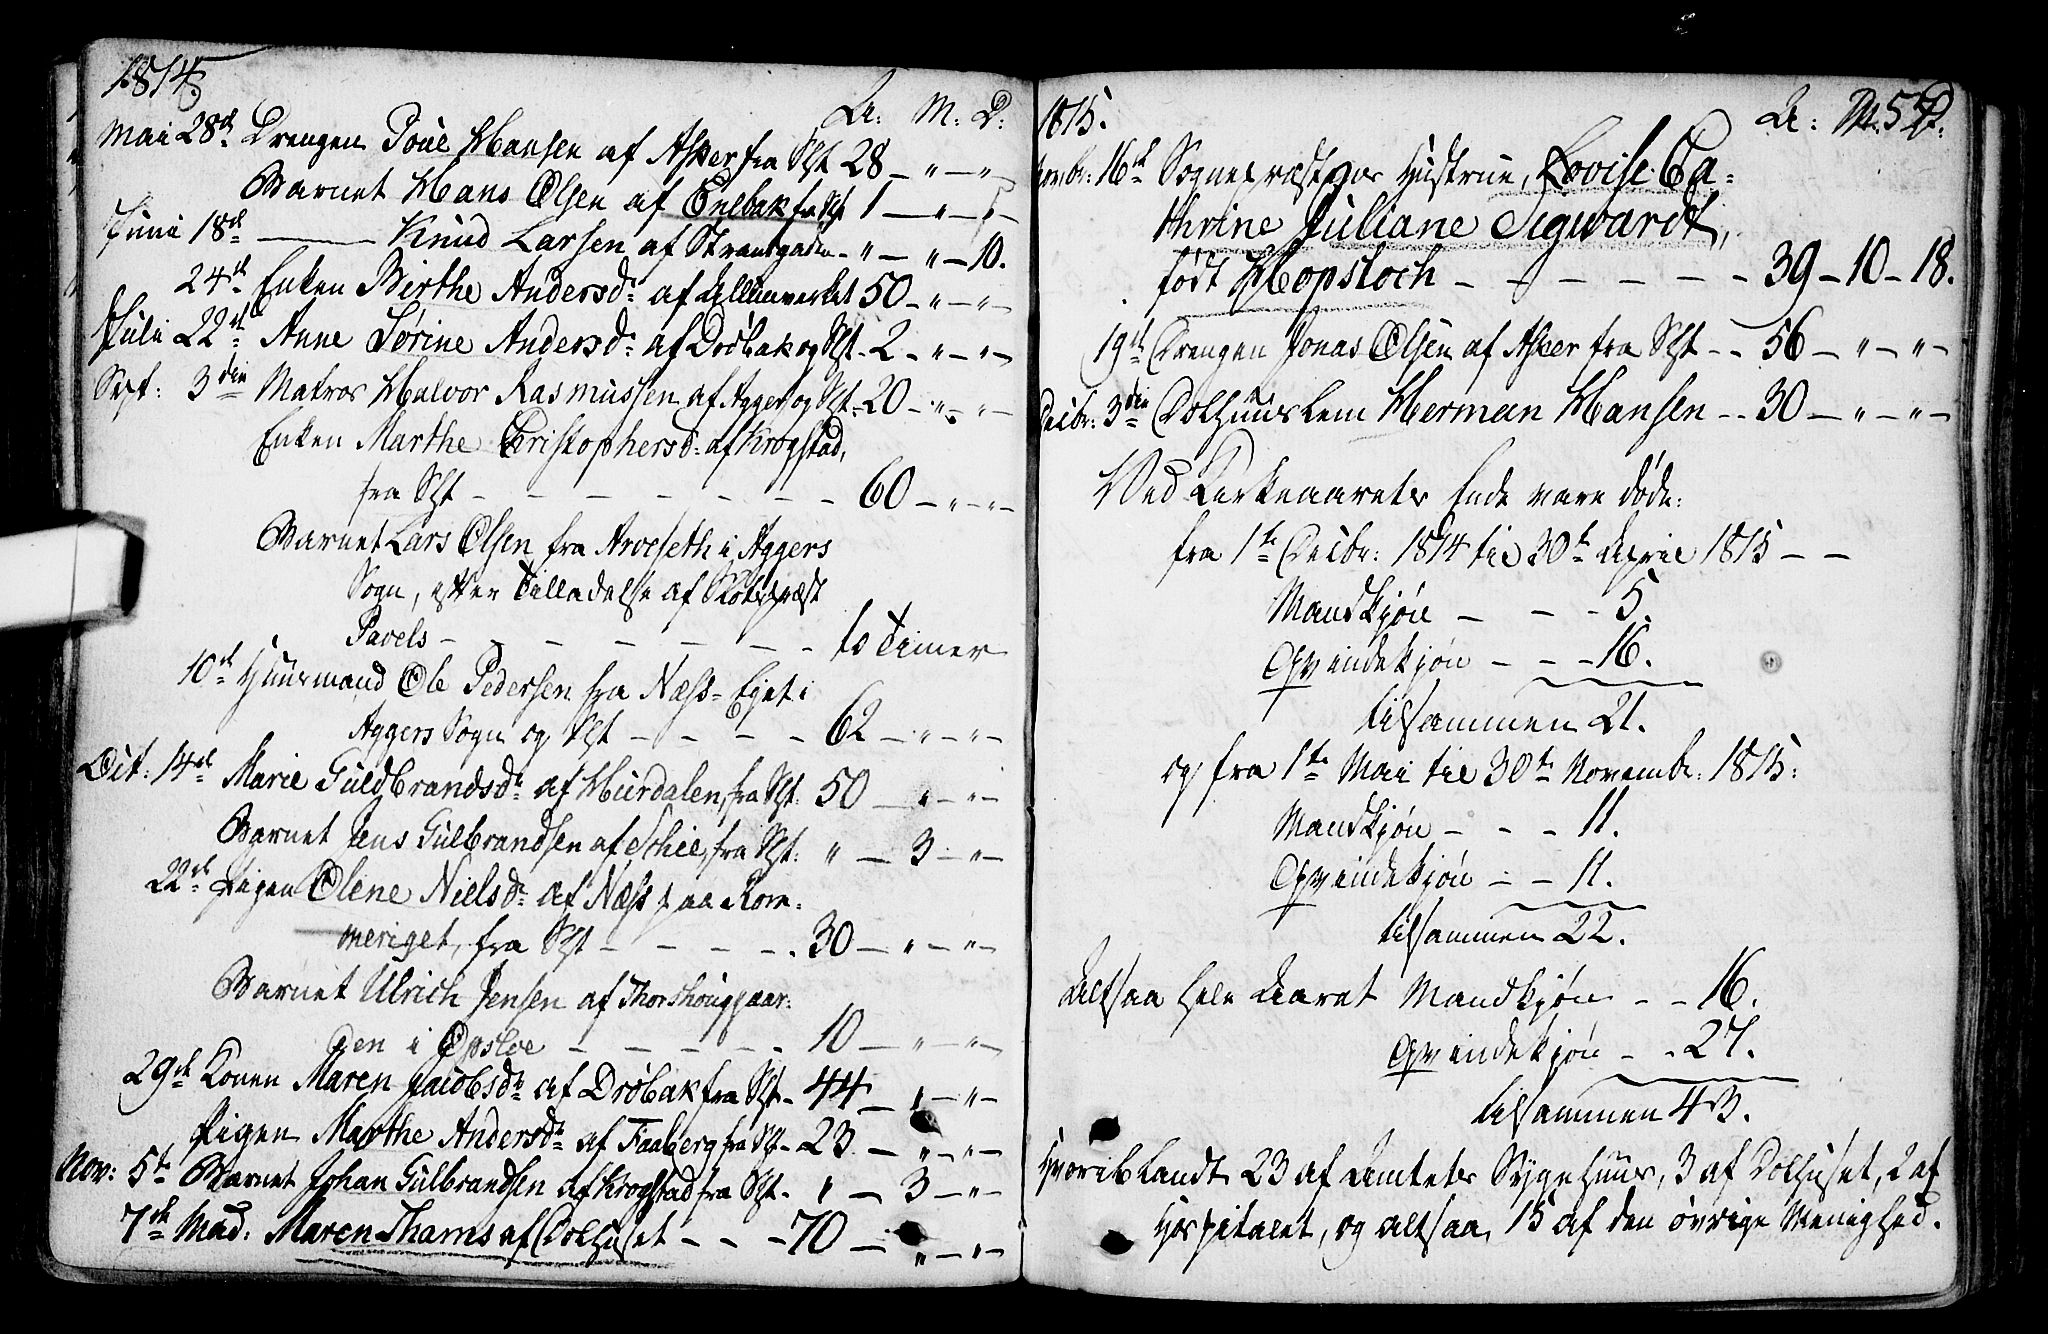 1815.
A: M: D:
Mai 28de Drengen Poul Hansen af Asker fra Sst 28 — " — "
Barnet Hans Olsen af Enebak fra Sst 1 — " — "
Juni 18de — Knud Larsen af Strandgaden - " — " — 10.
24de Enken Birthe Andersd: af Allunverket 50 — " — "
Juli 22de Anne Sørine Andersd: af Drøbak og Sst - 2 — " — "
Sept: 3die Matros Halvor Rasmussen af Agger og Sst - 20 — " — "
Enken Marthe Christophersd: af Krogstad,
fra Sst — — — — — — — 60 — " — "
Barnet Lars Olsen fra Arveseth i Aggers
Sogn, efter Tilladelse af Slotspræst
Pavels — — — — — — to Timer
10de Huusmand Ole Pedersen fra Næss-Ejet i
Aggers Sogn og Sst — — — — 62 — " — "
Oct: 14de Marie Guldbrandsd: af Hurdalen, fra Sst: 50 — " — "
Barnet Jens Gulbrandsen af Schie, fra Sst: " — 3 — "
22de Pigen Olene Nielsd: af Næss paa Rom-
meriget, fra Sst — — — — 30 — " — "
Barnet Ulrich Jensen af Thorshouggaar-
den i Opsloe — — — — — 10 — " — "
29de Konen Maren Jacobsd: af Drøbak fra Sst - 44 — " — "
Pigen Marthe Andersd: af Faaberg fra Sst - 23 — " — "
Nov: 5te Barnet Johan Gulbrandsen af Krogstad fra Sst - " — 3 — "
7de Mad: Maren Thams af Dolhuset — — — 70 — " — "
1815.
57
A: M: D:
Novbr: 16de Sognepræst Hustrue, Lovise Ca-
thrine Juliane Sigwardt,
født Hopstoch — — — — — — 39 — 10 — 18.
19de Drengen Jonas Olsen af Asker fra Sst — — 56 — " — "
Decbr: 3die Dolhuuslem Herman Hansen — — 30 — " — "
Ved Kirkeaarets Ende vare døde:
fra 1te Decbr: 1814 til 30te April 1815 — —
Mandkjøn — — — 5.
Qvindekjøn — — — 16.
tilsammen 21.
og fra 1te Mai til 30te Novembr: 1815:
Mandkjøn — — — 11.
Qvindekjøn — — 11.
tilsammen 22.
Altsaa hele Aaret Mandkjøn — — 16.
Qvindekjøn — — 27.
tilsammen 43.
Hvoriblandt 23 af Amtets Sygehuus, 3 af Dolhuset, 2 af
Hospitalet, og altsaa 15 af den øvrige Menighed.